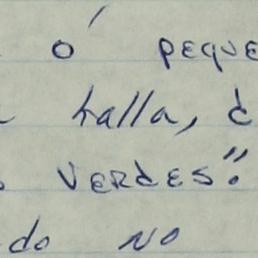 ó peque
halla, d
verdes".
do no